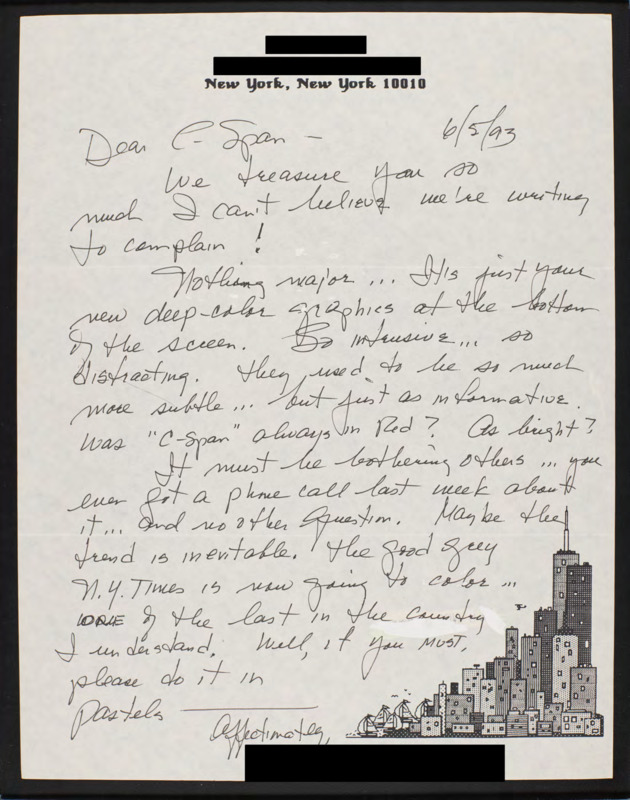 New York, New York 10010
6/5/93
Dear C-Span —
We treasure you so
much I can't believe we're writing
to complain!
Nothing major... It's just your
new deep-color graphics at the bottom
of the screen. So intrusive... so
distracting. They used to be so much
more subtle... but just as informative.
Was "C-Span" always in Red? As bright?
It must be bothering others... you
even got a phone call last week about
it... and no other question. Maybe the
trend is inevitable. The good grey
N.Y. Times is now going to color...
ONE of the last in the country
I understand. Well, if you MUST,
please do it in
pastels
Affectionately,